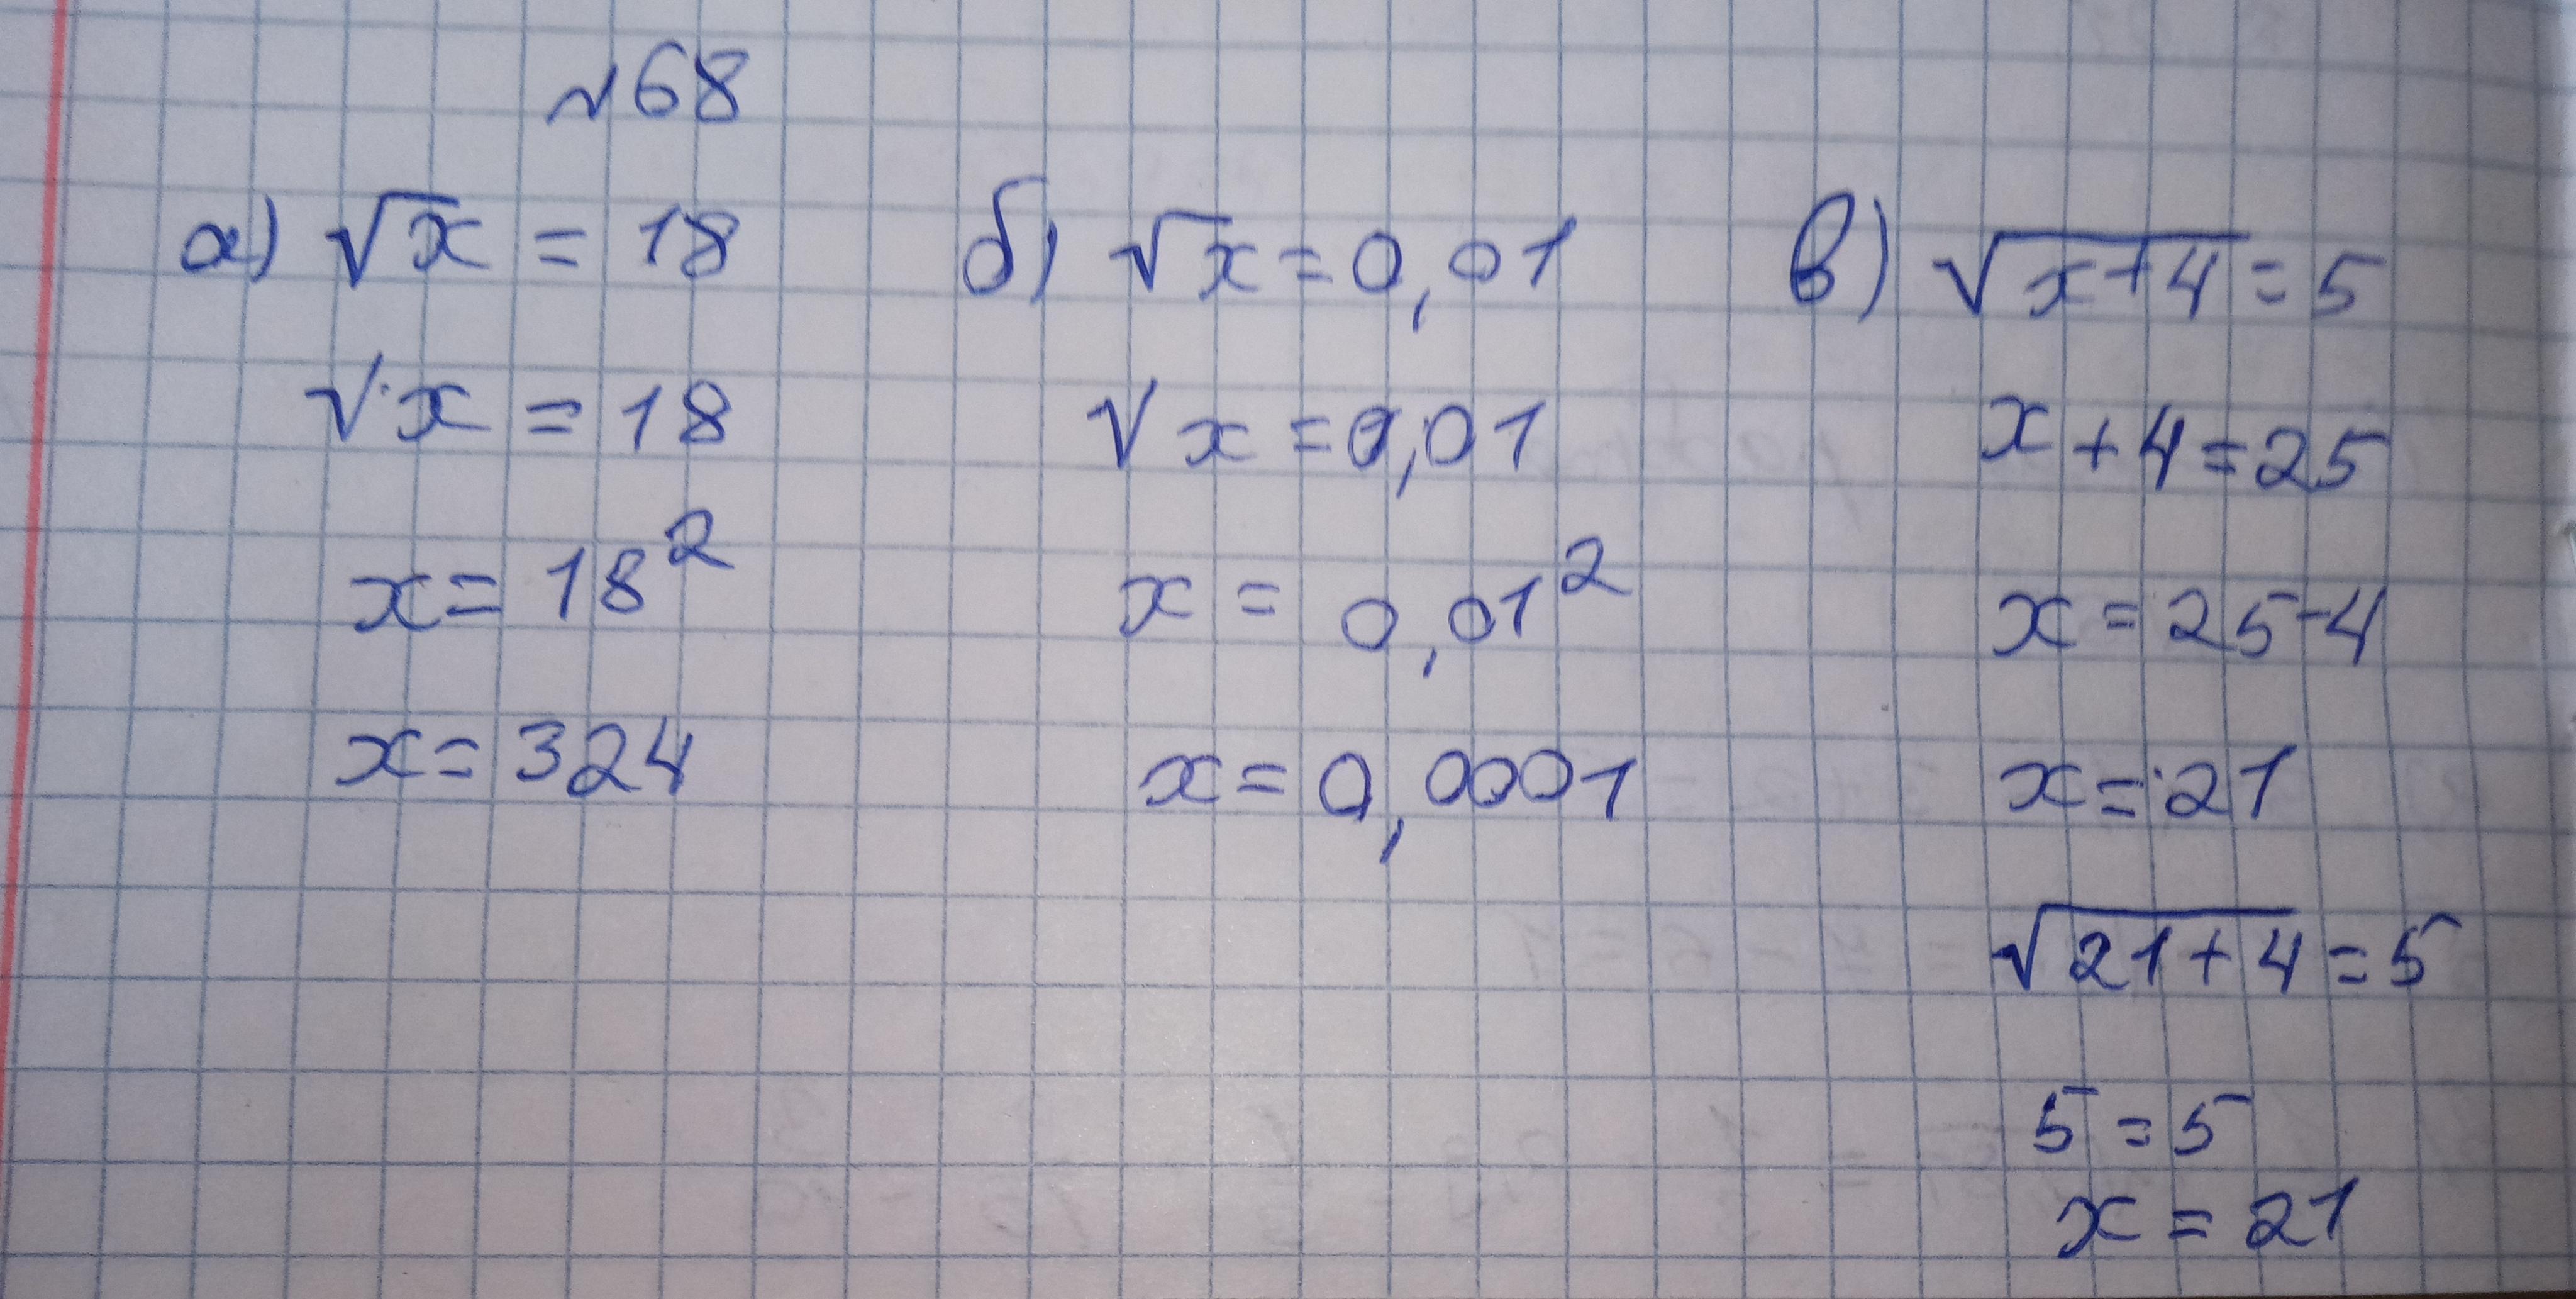 №68
а) √x = 18
√x = 18
x = 18²
x = 324
б) √x = 0,01
√x = 0,01
x = 0,01²
x = 0,0001
в) √(x+4) = 5
x + 4 = 25
x = 25-4
x = 21
√(21+4) = 5
5 = 5
x = 21